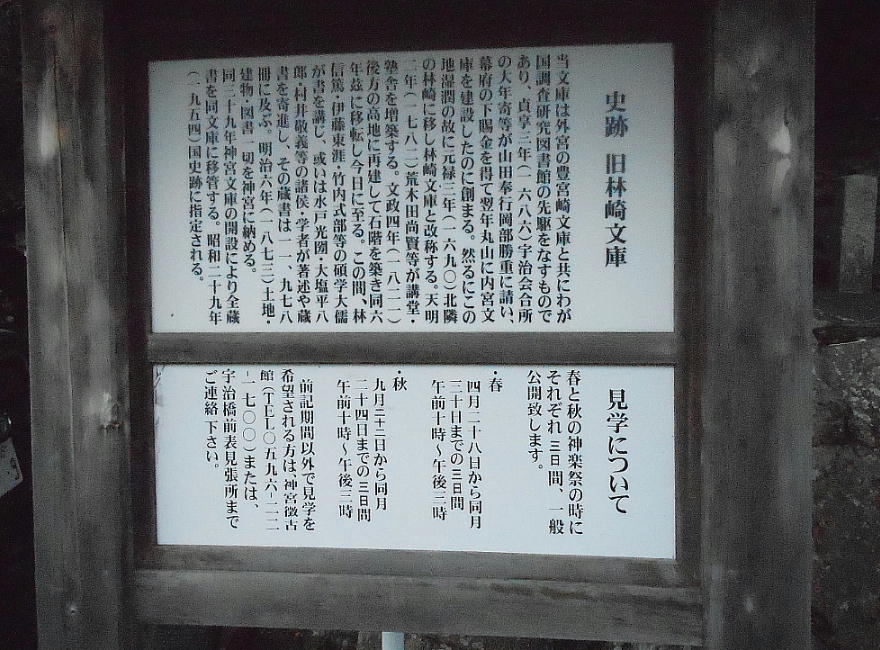 史跡 旧林崎文庫
当文庫は外宮の豊宮崎文庫と共にわが
国調査研究図書館の先駆をなすもので
あり、貞享三年(一六八六)宇治会合所
の大年寄等が山田奉行岡部勝重に請い、
幕府の下賜金を得て翌年丸山に内宮文
庫を建設したのに創まる。然るにこの
地湿潤の故に元禄三年(一六九〇)北隣
の林崎に移し林崎文庫と改称する。天明
二年(一七八二)荒木田尚賢等が講堂・
塾舎を増築する。文政四年(一八二一)
後方の高地に再建して石階を築き同六
年玆に移転し今日に至る。この間、林
信篤・伊藤東涯・竹内式部等の碩学大儒
が書を講じ、或いは水戸光圀・大塩平八
郎・村井敬義等の諸侯・学者が著述や蔵
書を寄進し、その蔵書は一一、九七八
冊に及ぶ。明治六年(一八七三)土地・
建物・図書一切を神宮に納める。
同三十九年神宮文庫の開設により全蔵
書を同文庫に移管する。昭和二十九年
(一九五四)国史跡に指定される。
見学について
春と秋の神楽祭の時に
それぞれ三日間、一般
公開致します。
・春
四月二十八日から同月
三十日までの三日間
午前十時〜午後三時
・秋
九月二十二日から同月
二十四日までの三日間
午前十時〜午後三時
前記期間以外で見学を
希望される方は、神宮徴古
館(TEL〇五九六-二二
-一七〇〇)または、
宇治橋前表見張所まで
ご連絡下さい。